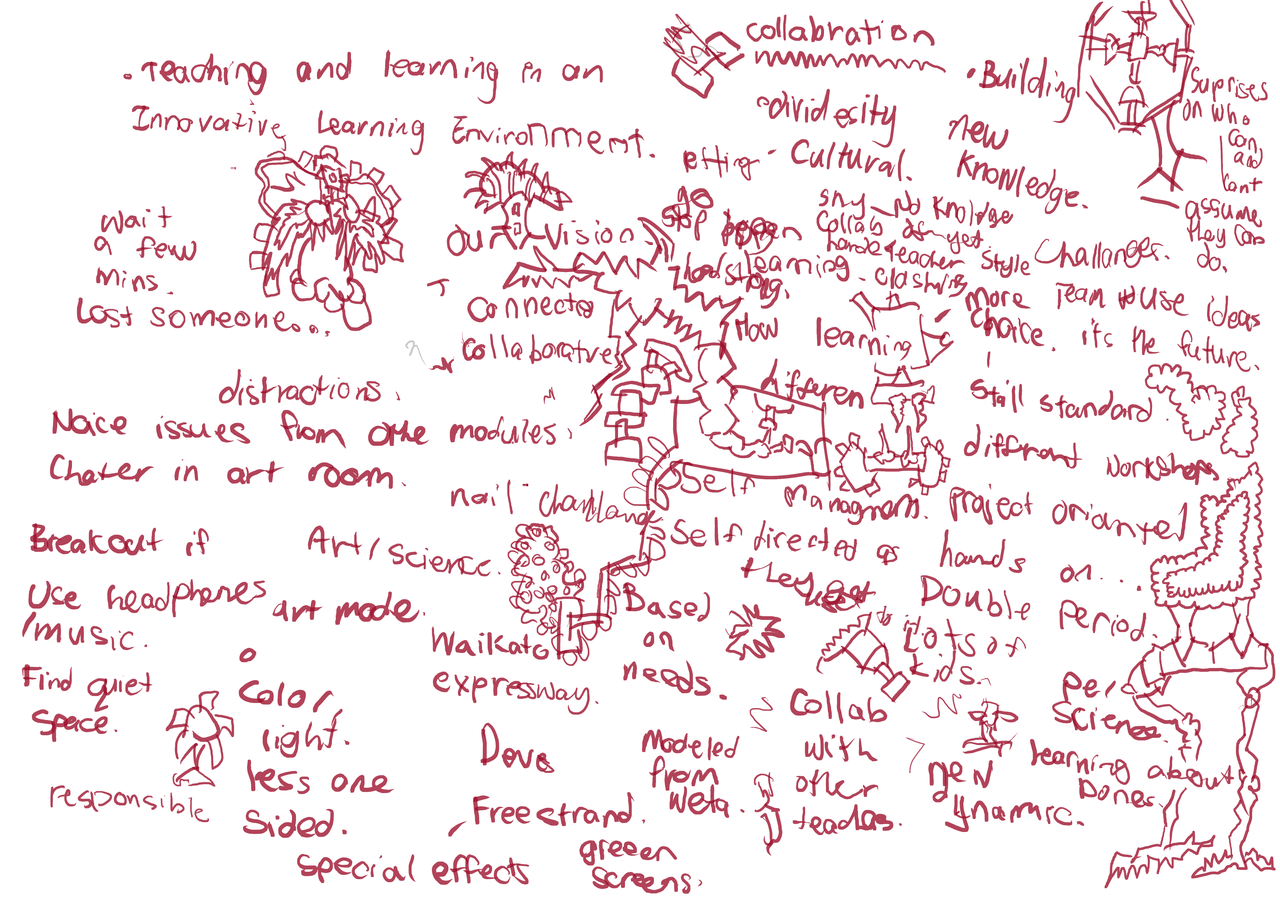 . Teaching and learning in an
Innovative Learning Environment.
wait
a few
mins.
Lost someone...
our vision
Connected
Collaborative
distractions.
Noice issues from othe modules.
Chater in art room.
nail challange
Breakout if
Art/science.
Use headphones
/music.
art mode.
Find quiet
space.
responsible
Color,
light.
less one
sided.
Waikato
expressway.
Dove
Freestrand.
special effects
greeen
screens.
collabration
dividesity
Cultural.
.Building
new
knowledge.
Suprises
on who
can
and
cant
assume
they can
do.
go
learning.
headstrong.
No knoldge
Collab as yet
teacher style
clashing
Challanges.
more Team use ideas
Choice. it's the future.
How learning
differen
Still standard.
different workshops
Self managment.
project oriantel
Self directed as hands on....
they get
Double
Period.
Based
on
needs.
Lots of
kids.
per
Science.
Modeled
from
weta.
Collab
with
other
teachas.
new
dynamic.
learning about
Bones